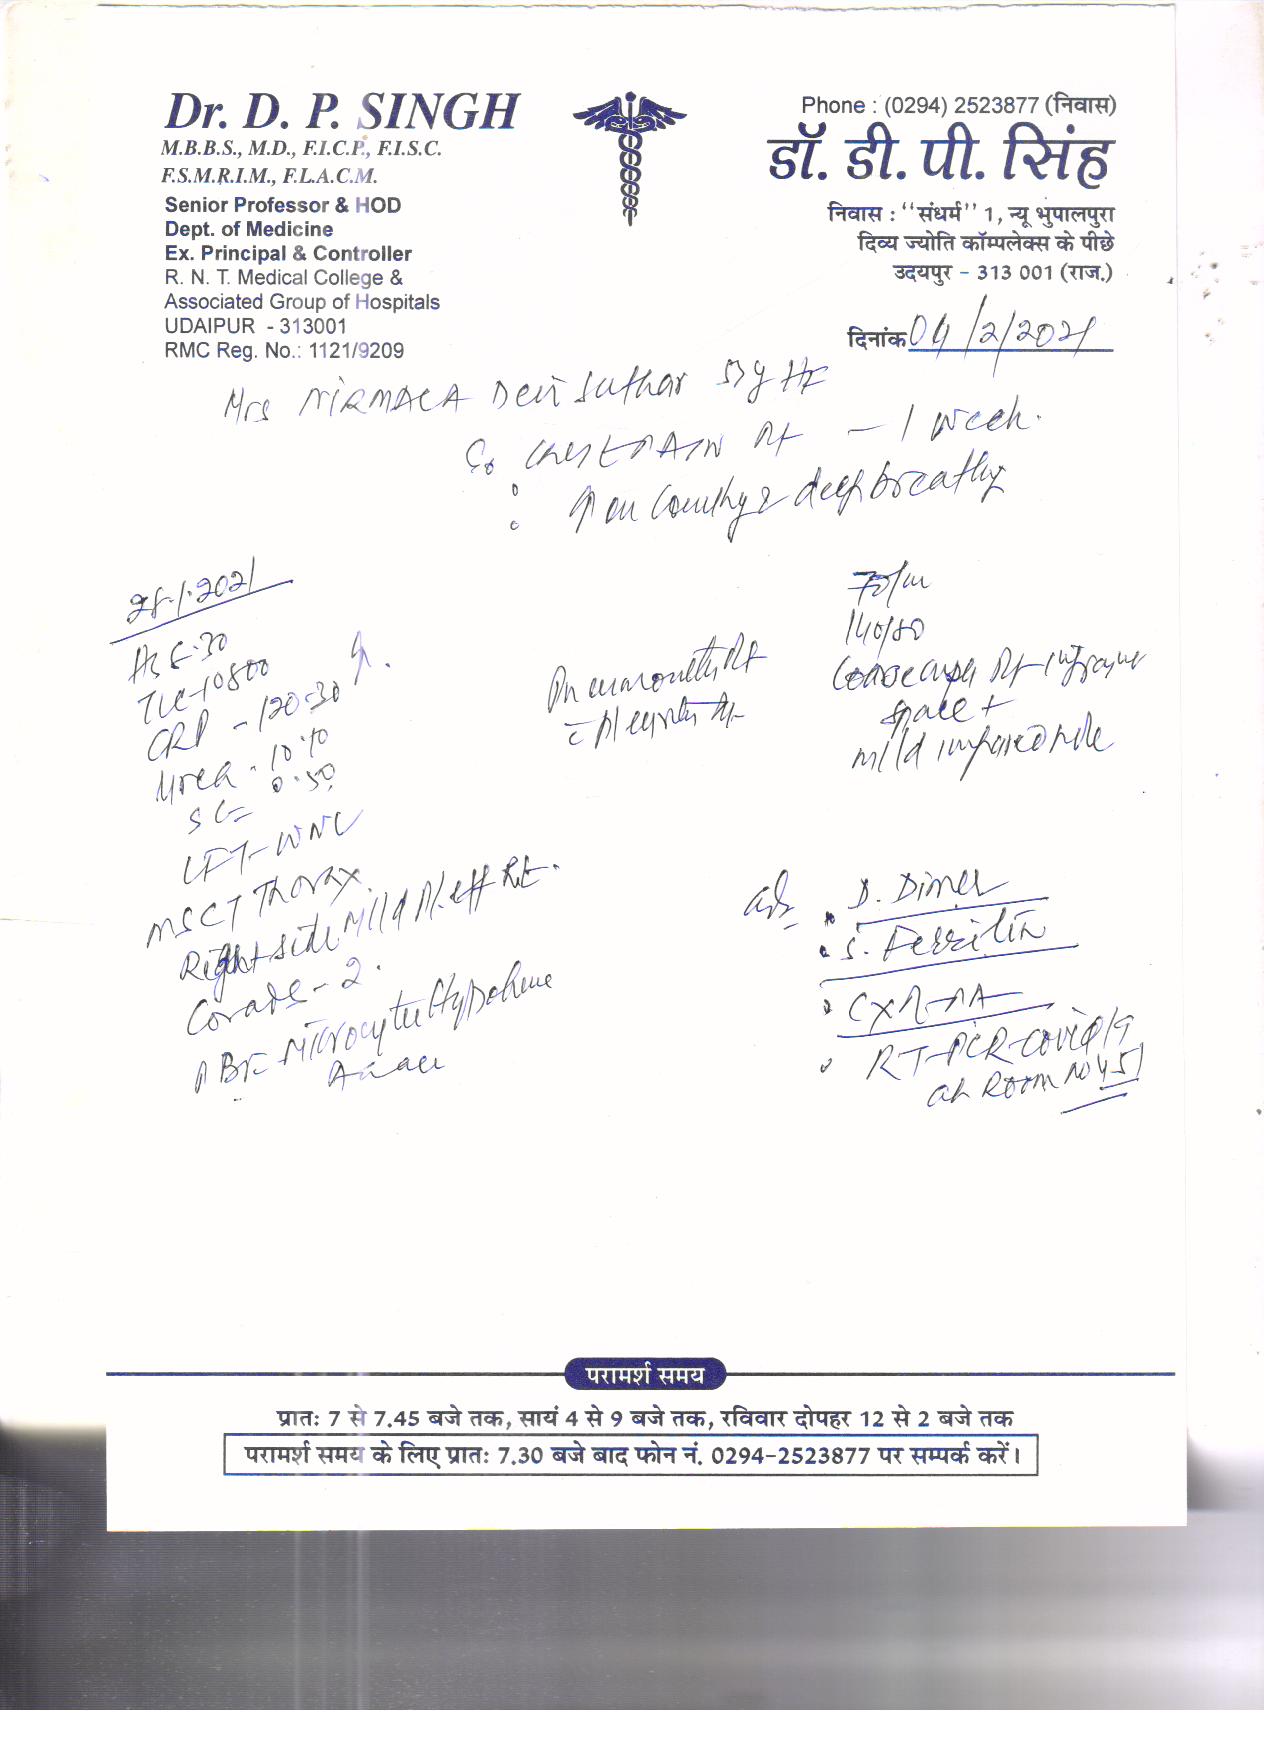 Dr. D. P. SINGH
M.B.B.S., M.D., F.I.C.P., F.I.S.C.
F.S.M.R.I.M., F.L.A.C.M.
Senior Professor & HOD
Dept. of Medicine
Ex. Principal & Controller
R. N. T. Medical College &
Associated Group of Hospitals
UDAIPUR - 313001
RMC Reg. No.: 1121/9209
Phone : (0294) 2523877 (निवास)
डॉ. डी. पी. सिंह
निवास : "संधर्म" 1, न्यू भुपालपुरा
दिव्य ज्योति कॉम्पलेक्स के पीछे
उदयपुर - 313 001 (राज.)
दिनांक 04/2/2021
Mrs NIRMALA Devi Suthar
CHEST PAIN Rt - 1 week.
↑ on & deep breathy
28.1.2021
TLC-10800
CRP - 120.30 ↑.
Urea - 10.70
0.50
LFT-WNL
MSCT Thorax.
Right side Mild Pl. eff Rt.
Corads - 2.
PBF-
70/m
140/80
Coarse Rt
space +
mild impaired note
Rt
adv
D. Dimer
S. Ferritin
CXR-PA
RT-PCR-Covid 19
at Room no 451
परामर्श समय
प्रातः 7 से 7.45 बजे तक, सायं 4 से 9 बजे तक, रविवार दोपहर 12 से 2 बजे तक
परामर्श समय के लिए प्रातः 7.30 बजे बाद फोन नं. 0294-2523877 पर सम्पर्क करें।